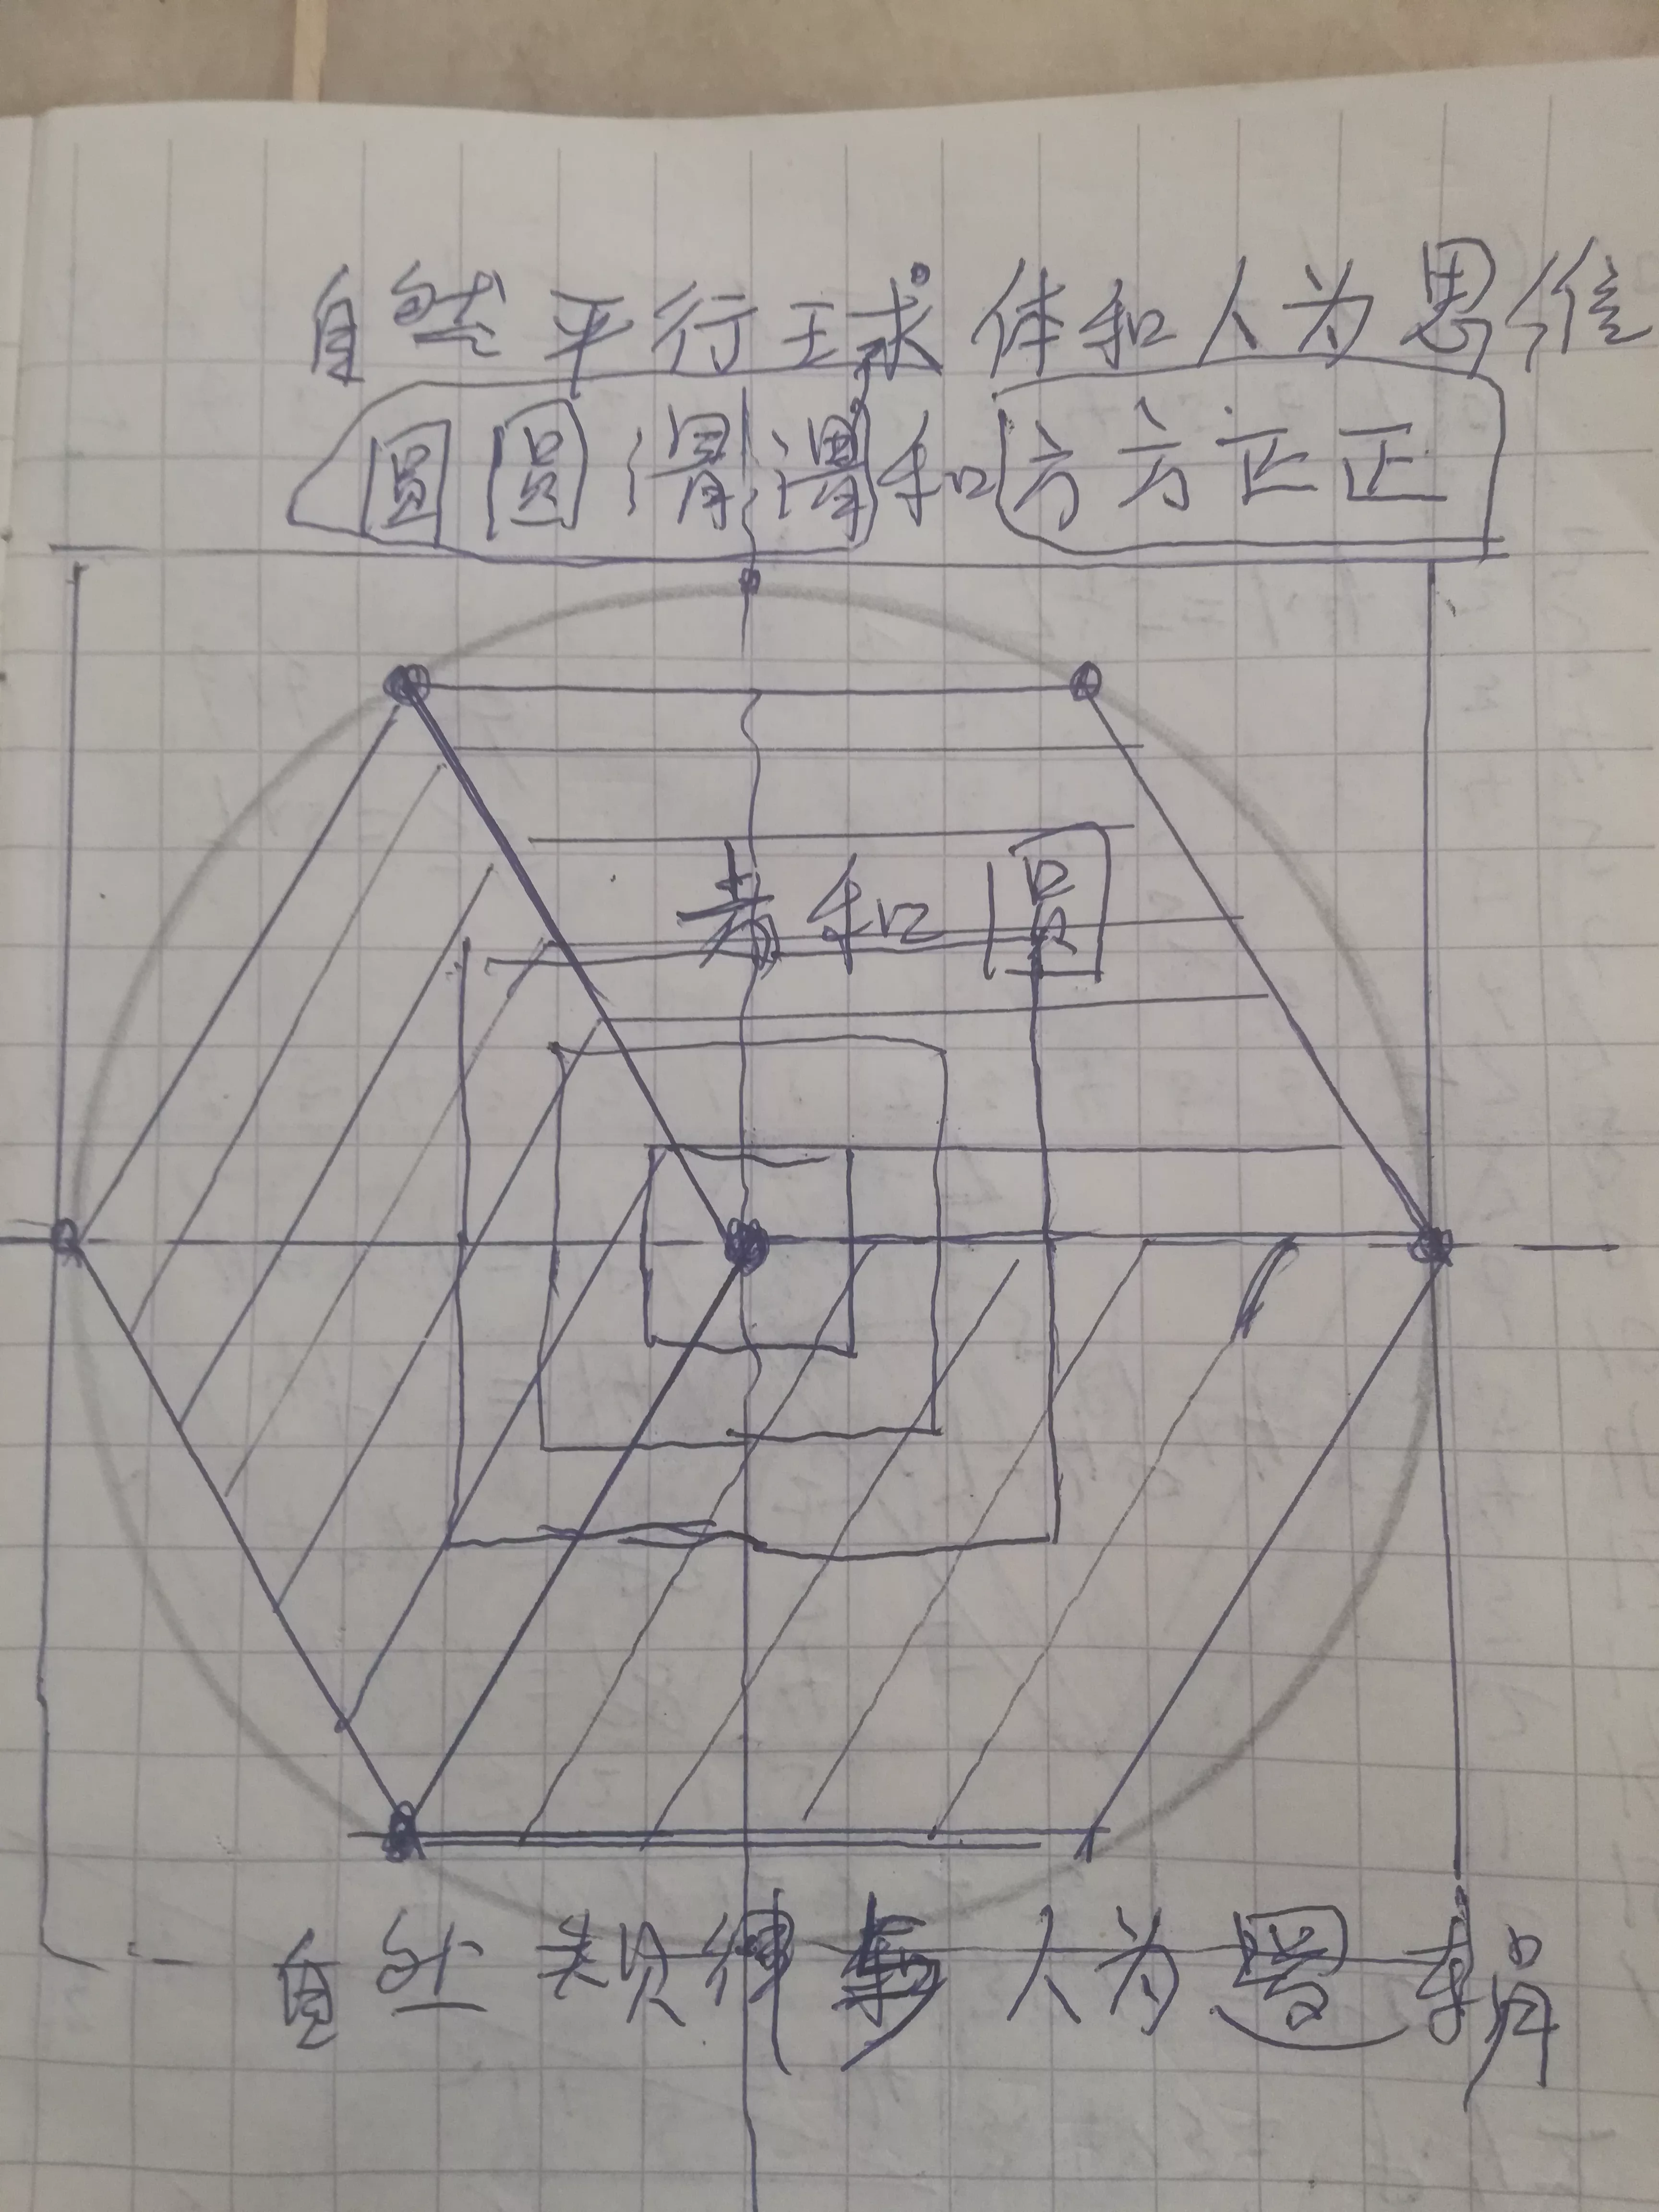 自然平行球体和人为思维
圆圆滑滑和方方正正
和圆
自然规律和人为逻辑